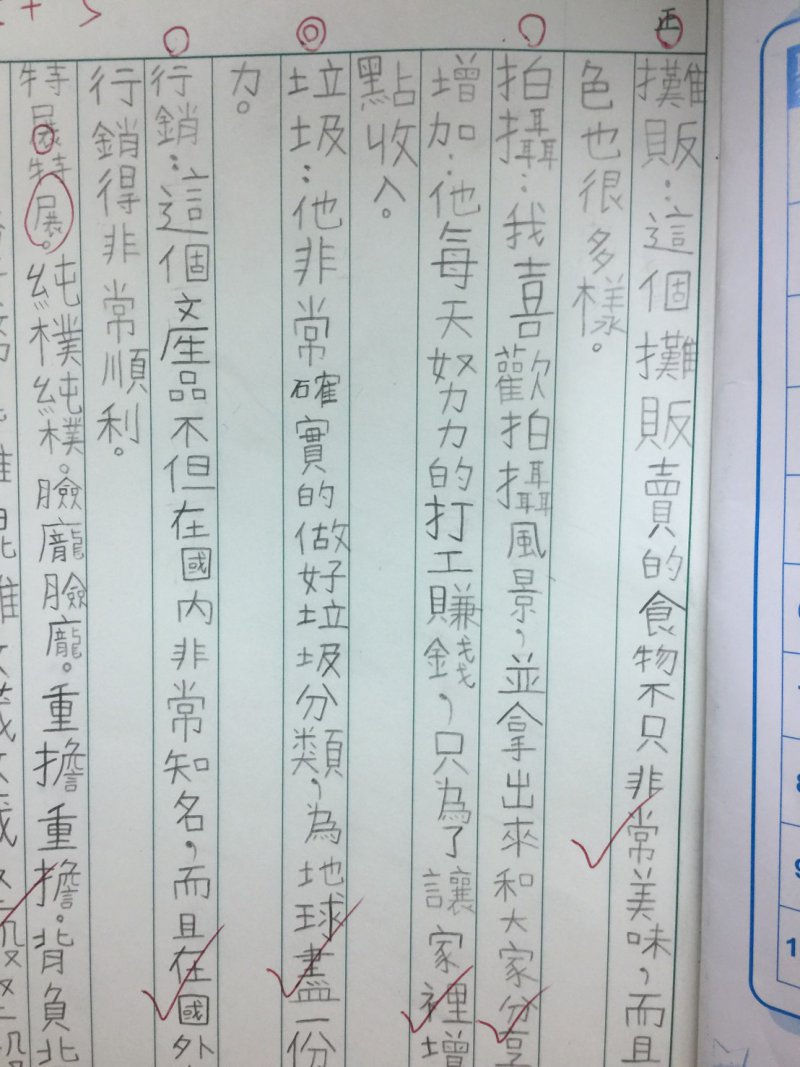 正
攤販:這個攤販賣的食物不只非常美味,而且
色也很多樣。
拍攝:我喜歡拍攝風景,並拿出來和大家分享
增加:他每天努力的打工賺錢,只為了讓家裡增
點收入。
垃圾:他非常確實的做好垃圾分類,為地球盡一份
力。
行銷:這個文產品不但在國內非常知名,而且在國外
行銷得非常順利。
特展特展。純樸純樸。臉龐臉龐。重擔重擔。背負北